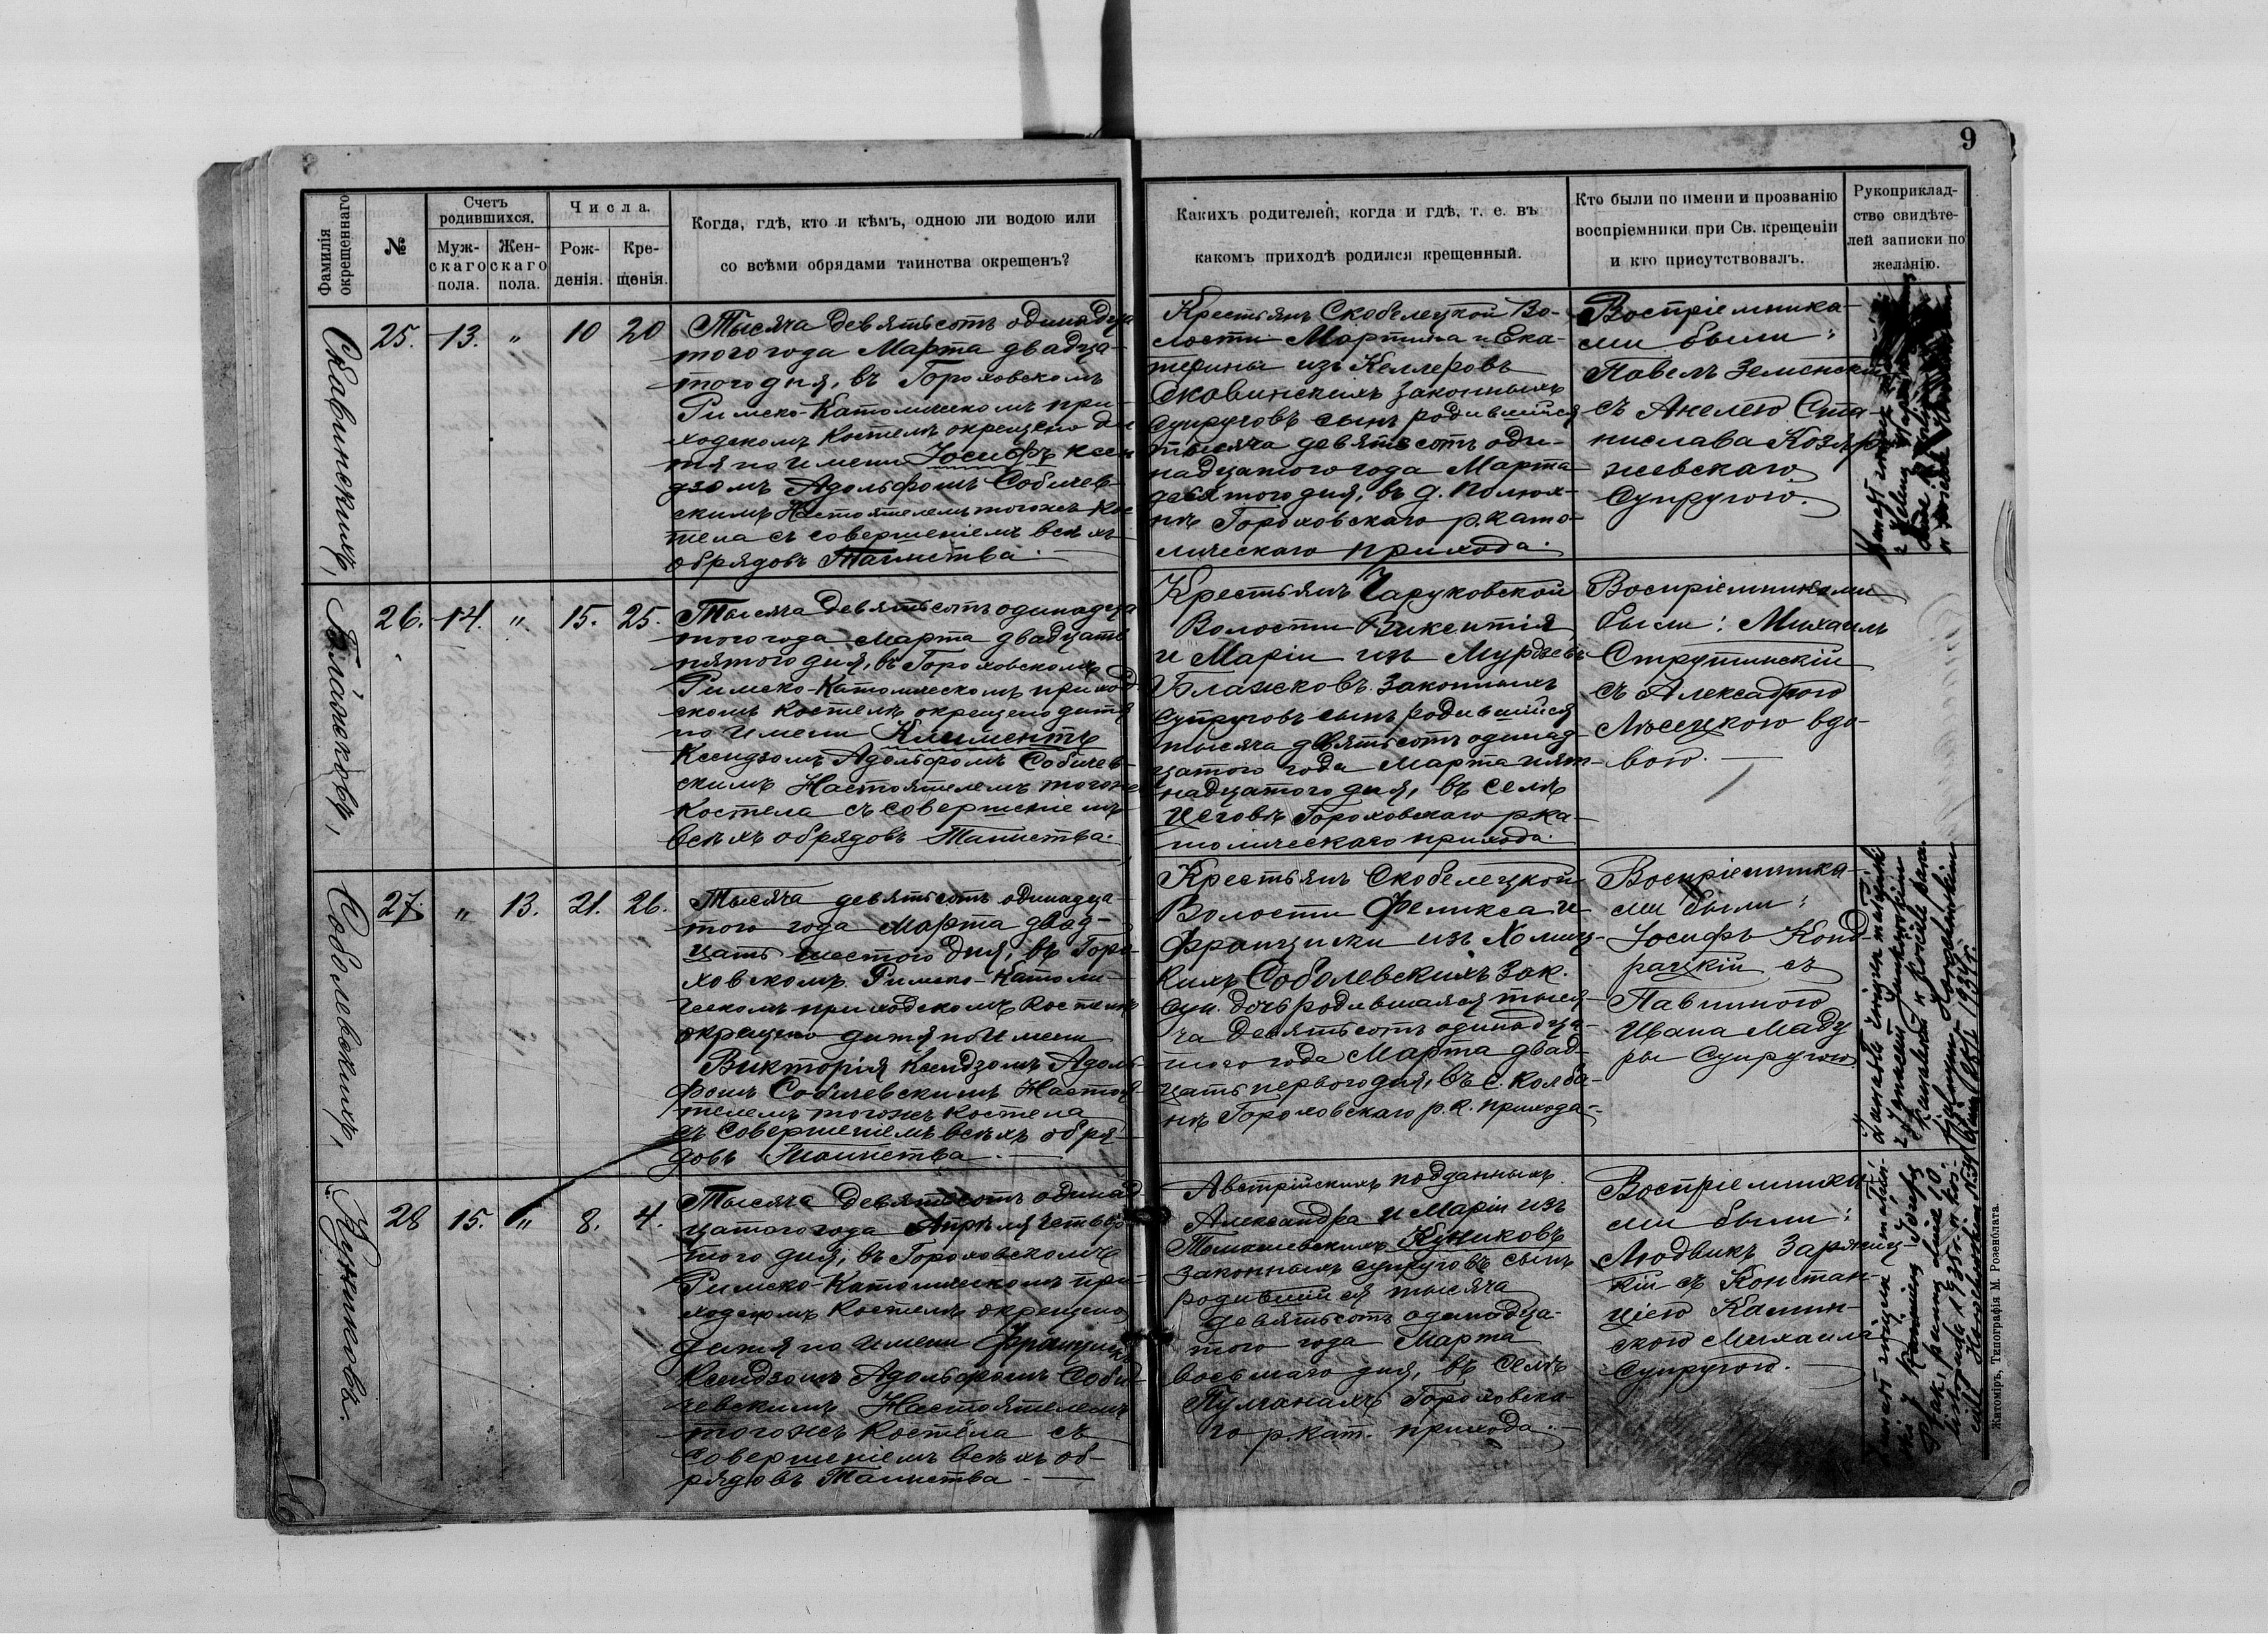 9
Фамилія окрещеннаго
№
Счетъ родившихся.
Мужскаго пола.
Женскаго пола.
Числа.
Рожденія.
Крещенія.
Когда, гдѣ, кто и кѣмъ, одною ли водою или
со всѣми обрядами таинства окрещенъ?
Какихъ родителей, когда и гдѣ, т. е. въ
какомъ приходѣ родился крещенный.
Кто были по имени и прозванію
воспріемники при Св. крещеніи
и кто присутствовалъ.
Рукоприклад-
ство свидѣте-
лей записки по
желанію.
Скавинскихъ,
25. 13. " 10 20
Тысяча девятьсотъ одинадца
того года Марта двадца-
того дня, въ Гороховскомъ
Римско-Католическомъ при-
ходскомъ Костелѣ окрещено ди
тя по имени Іосифъ ксен
дзомъ Адольфомъ Собичев-
скимъ Настоятелемъ тогоже Кос
тела съ совершеніемъ всѣхъ
обрядовъ Таинства.
Крестьянъ Скобелецкой Во-
лости Мартина и Ека-
терины изъ Келлеровъ
Скавинскихъ законныхъ
супруговъ сынъ родившійся
тысяча девятьсотъ оди-
надцатого года Марта
десятого дня, въ д. Полюх-
нѣ Гороховскаго р. като-
лическаго прихода.
Воспріемника-
ми были:
Павелъ Земский
съ Анелею Ста-
нислава Козяр
невскаго
Супругою.
Бляжковъ,
26. 14. " 15. 25.
Тысяча девятьсотъ одинадца
того года Марта двадцать
пятого дня, въ Гороховскомъ
Римско-Католическомъ приход
скомъ костелѣ окрещено дитя
по имени Климентъ
Ксендзомъ Адольфомъ Собичев-
скимъ Настоятелемъ тогоже
Костела съ совершеніемъ
всѣхъ обрядовъ Таинства.
Крестьянъ Чаруковской
Волости Викентія
и Маріи изъ
Блажковъ законныхъ
супруговъ сынъ родившійся
тысяча девятьсотъ одинад-
цатого года Марта пят-
надцатого дня, въ селѣ
Цеговѣ Гороховскаго р. ка-
толическаго прихода.
Воспріемниками
были: Михаилъ
Струтинскій
съ Александрою
Лѣсецкою вдо-
вою.
Соболевскихъ,
27. " 13. 21. 26.
Тысяча девятьсотъ одинадца-
того года Марта двад-
цать шестого дня, въ Горо-
ховскомъ Римско-Католи-
ческомъ приходскомъ Костелѣ
окрещено дитя по имени
Викторія Ксендзомъ Адоль-
фомъ Собичевскимъ Настоя-
телемъ тогоже костела
съ совершеніемъ всѣхъ обря-
довъ Таинства.
Крестьянъ Скобелецкой
Волости Феликса и
Францишки изъ Холиц-
кихъ Соболевскихъ зак.
суп. дочь родившаяся тыся-
ча девятьсотъ одинадца-
того года Марта двад-
цать первого дня, въ с. Колба-
нѣ Гороховскаго р. к. прихода.
Воспріемника-
ми были:
Іосифъ Конд-
рацкій съ
Павлиною
Ивана Маду
ры Супругою
Куниковъ.
28 15. " 8. 4.
Тысяча девятьсотъ одинад
цатого года Апрѣля четвер
того дня, въ Гороховскомъ
Римско-Католическомъ при-
ходскомъ Костелѣ окрещено
дитя по имени Францишкъ
Ксендзомъ Адольфомъ Соби-
чевскимъ Настоятелемъ
тогоже Костела съ
совершеніемъ всѣхъ об-
рядовъ Таинства.
Австрійскихъ подданныхъ
Александра и Маріи изъ
Томашевскихъ Куниковъ
законныхъ супруговъ сынъ
родившійся тысяча
девятьсотъ одинадца-
того года Марта
восьмаго дня, въ селѣ
Пулганахъ Гороховска-
го р. кат. прихода.
Воспріемника
ми были:
Людвикъ Заржиц-
кій съ Констан-
ціею Камин-
скою Михаила
Супругою.
Житоміръ, Типографія М. Розенблата.